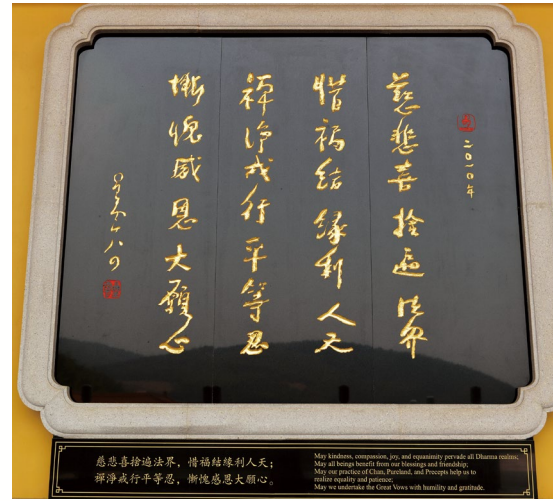 二〇一〇年
慈悲喜捨遍法界
惜福結緣利人天
禪淨戒行平等忍
慚愧感恩大願心
慈悲喜捨遍法界，惜福結緣利人天；
禪淨戒行平等忍，慚愧感恩大願心。
May kindness, compassion, joy, and equanimity pervade all Dharma realms;
May all beings benefit from our blessings and friendship;
May our practice of Chan, Pureland, and Precepts help us to
realize equality and patience;
May we undertake the Great Vows with humility and gratitude.